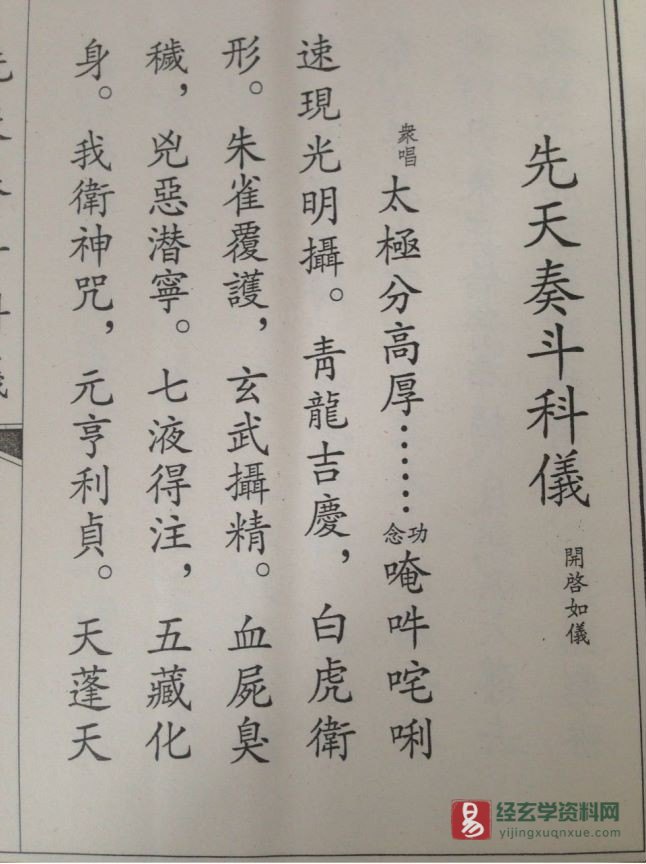 先天奏斗科儀
開啓如儀
衆唱
太極分高厚……
功念
唵吽咤唎
速現光明攝。青龍吉慶，白虎衛
形。朱雀覆護，玄武攝精。血屍臭
穢，兇惡潛寧。七液得注，五藏化
身。我衛神咒，元亨利貞。天蓬天
易
经玄学资料网
yijingxuqnxue.com